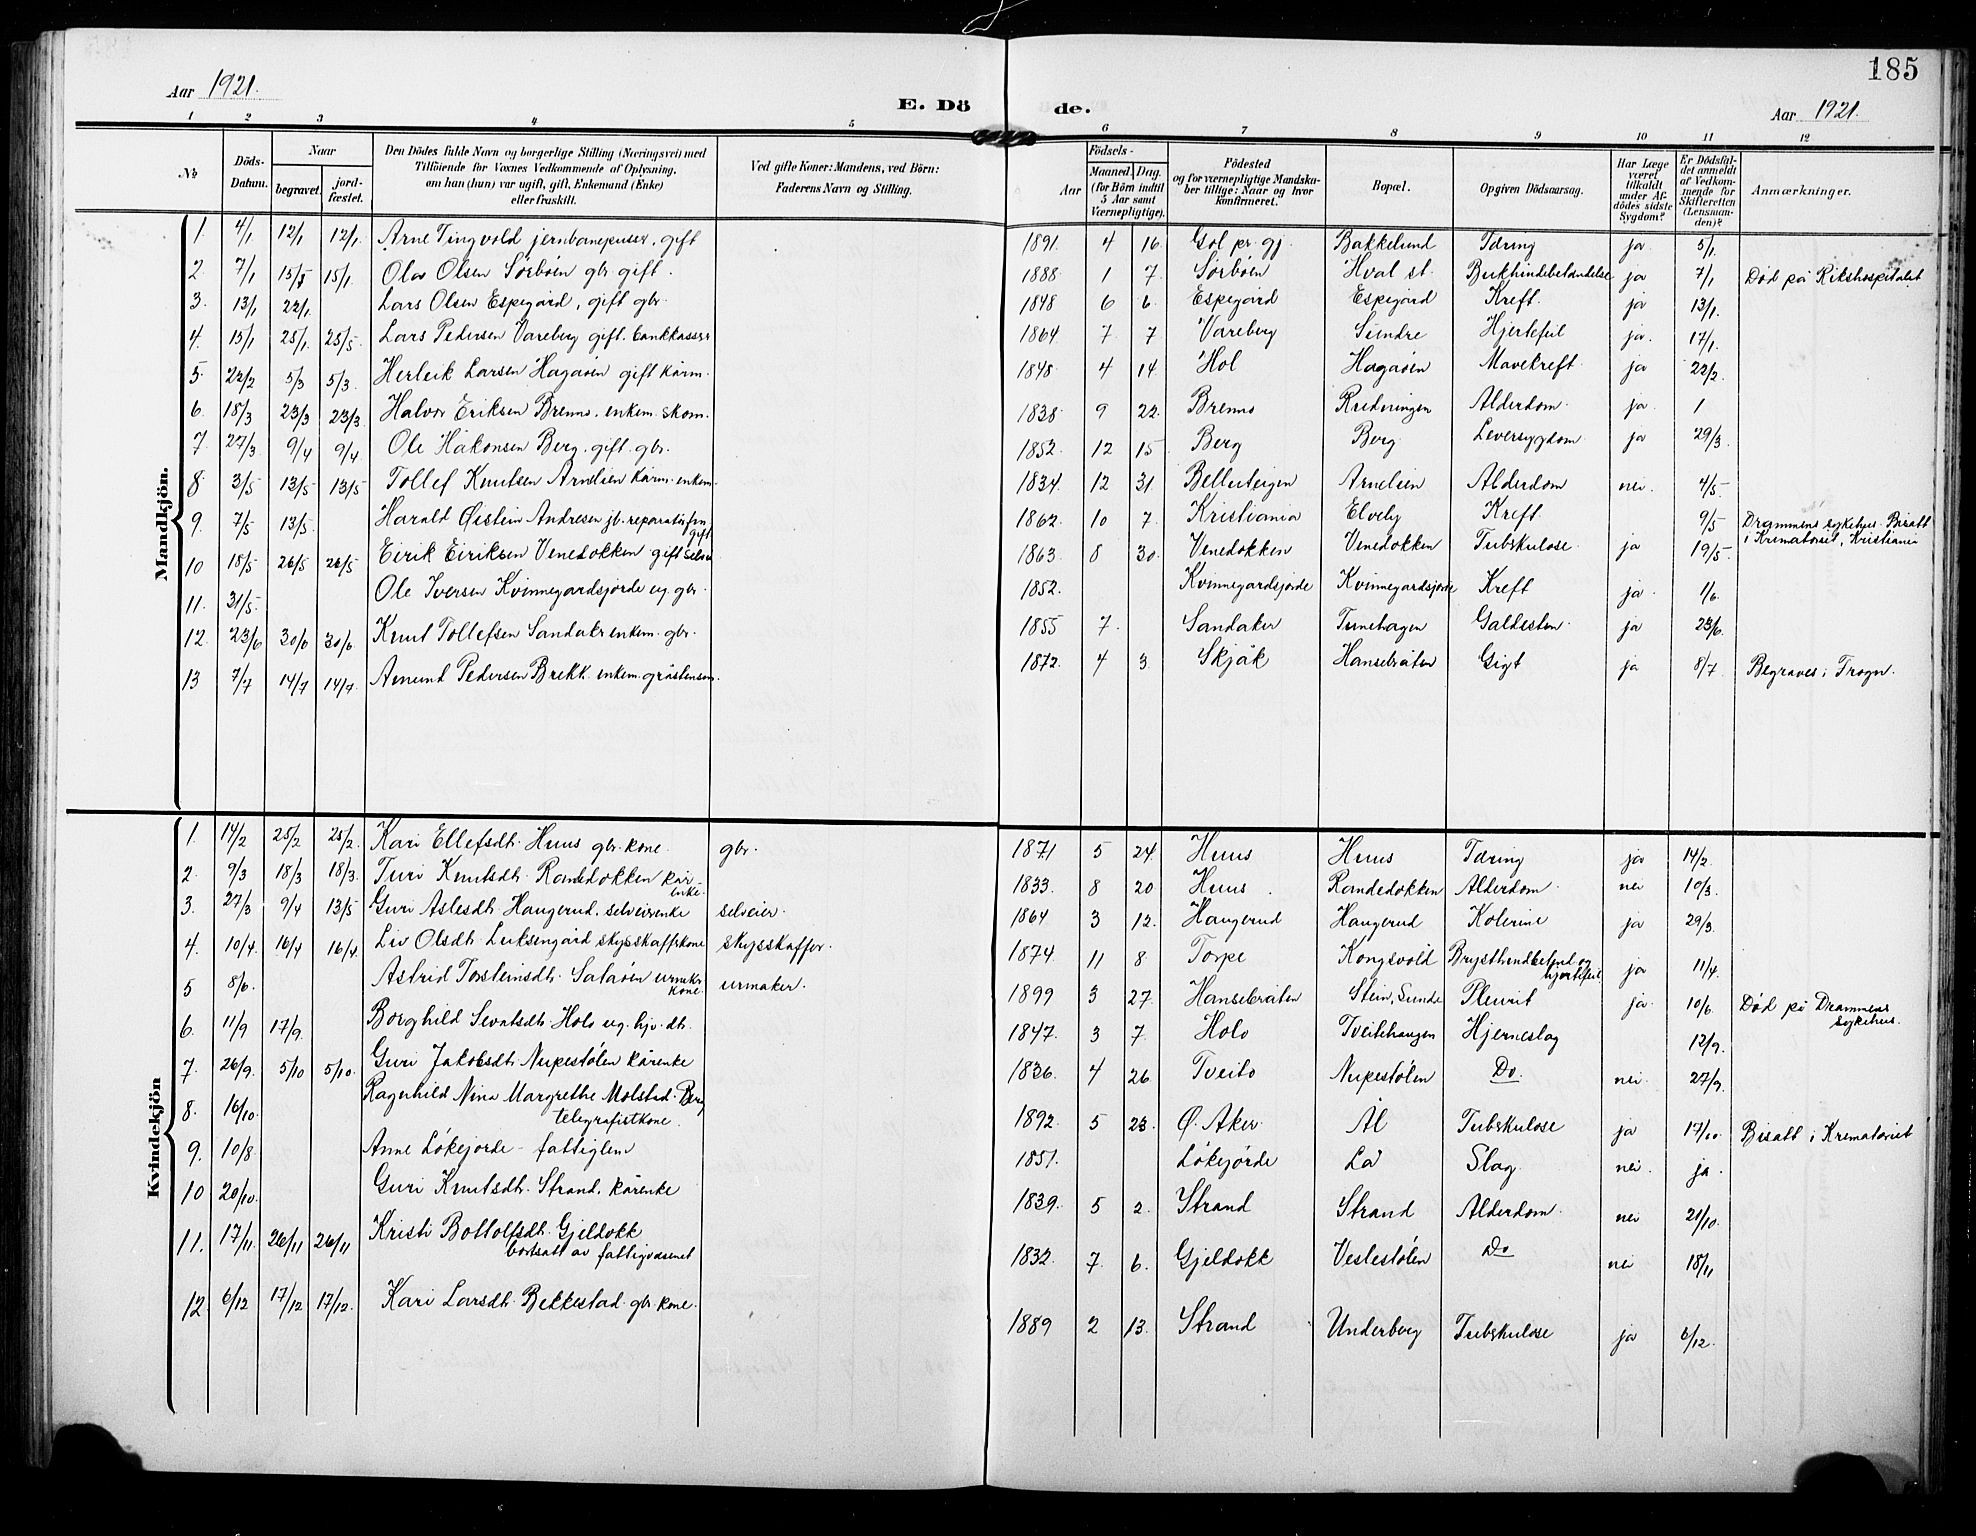 185
Aar 1921.
E. Dö
de.
Aar 1921.
1 2 3 4 5 6 7 8 9 10 11 12
No
Döds-Datum.
Naar
begravet.
jord-fæstet.
Den Dödes fulde Navn og borgerlige Stilling (Næringsvei) med
Tilföiende for Voxnes Vedkommende af Oplysning,
om han (hun) var ugift, gift, Enkemand (Enke)
eller fraskilt.
Ved gifte Koner: Mandens, ved Börn:
Faderens Navn og Stilling.
Födsels-
Aar
Maaned. Dag.
(for Börn indtil
5 Aar samt
Værnepligtige).
Födested
og for værnepligtige Mandska-
ber tillige: Naar og hvor
konfirmeret.
Bopæl.
Opgiven Dödsaarsag.
Har Læge
været
tilkaldt
under Af-
dödes sidste
Sygdom?
Er Dödsfal-
det anmeldt
af Vedkom-
mende for
Skifteretten
(Lensman-
den)?
Anmærkninger.
Mandkjön.
1. 4/1 12/1 12/1 Arne Tingvold jernbanepuser, gift 1891. 4 16. Gol pr. gj. Bakkelund Tæring ja 5/1.
2. 7/1 15/1 15/1. Olav Olsen Sörböen gbr. gift. 1888. 1 7. Sörböen Hval st. Bukhindebetændelse ja 7/1 Död på Rikshospitalet
3. 13/1 22/1. Lars Olsen Espegård, gift gbr. 1848 6 6. Espegård Espegård Kreft. ja 13/1.
4. 15/1 25/1. 28/5. Lars Pedersen Vareberg gift. bankkasser 1864 7. 7 Vareberg Sundre Hjertefeil ja. 17/1.
5. 22/2 5/3 5/3. Herleik Larsen Hagaöen gift kårm. 1848 4 14 Hol Hagaöen Mavekreft. ja 22/2.
6. 18/3 23/3 23/3 Halvor Eriksen Brenno. enkem. skom. 1838 9 22. Brenno Alderdom. ja. 1
7. 27/3 9/4 9/4 Ole Håkonsen Berg. gift. gbr. 1852. 12 15. Berg Berg Leversygdom ja 29/3.
8 3/5 13/5 13/5 Tollef Knutsen Arnelien kårm. enkem. 1834. 12 31. Belleisteigen Arnelien Alderdom nei. 4/5.
9. 7/5 13/5. Harald Øistein Andresen jb. reparatörfm. gift 1862. 10 7. Kristiania Elvely Kreft. 9/5 Drammens sykehus. Bisatt
i Krematoriet, Kristiania
10 18/5 26/5 26/5 Eirik Eiriksen Venedokken gift selv. 1863. 8 30. Venedokken Venedokken Tubskulose. ja 19/5.
11. 31/5. Ole Iversen Kvinnegardsjorde ug. gbr. 1852. Kvinnegardsjorde Kvinnegardsjorde Kreft ja. 1/6.
12. 23/6 30/6 30/6 Knut Tollefsen Sandaker enkem. gbr. 1855 7. Sandaker Tunehagen Galdesten. ja 23/6.
13 7/7 14/7 14/7. Amund Pedersen Brekk. enkem. gråstensm. 1872. 4 3. Skjåk Hansebråten Gigt ja 8/7 Begraves i Trogn.
Kvindekjön
1. 14/2 25/2 25/2. Kari Ellefsdt. Huus gbr. kone. gbr. 1871 5 24. Huus Huus Tæring ja 14/2.
2. 9/3 18/3 18/3. Turi Knutsdt. Randedokken kår enke. 1833. 8 20 Huus. Randedokken Alderdom. nei 10/3.
3. 27/3 9/4 13/5 Guri Aslesdt. Haugerud, selveierenke selveier. 1864 3 12. Haugerud Haugerud Kolerine ja 29/3.
4. 10/4. 16/4 16/4. Liv Olsdt. Luksengård skysskaffrkone skysskaffer. 1874. 11 8 Torpe Kongsvold Brysthindebetend og hjertefeil ja 11/4.
5 8/6. Astrid Torsteinsdt. Sataöen urmaker kone. urmaker. 1899 3 27. Hansebråten Stein, Sunde Pleurit ja. 10/6. Död på Drammens
sykehus.
6. 11/9 17/9. Borghild Sevatsdt. Holo ug. hjv. dt. 1847. 3 7. Holo Tveitehaugen Hjerneslag 12/9.
7. 26/9. 5/10 5/10. Guri Jakobsdt. Nupestölen kårenke 1836. 4 26 Tveito Nupestölen Do. nei. 27/9.
8. 16/10. Ragnhild Nina Margrethe Molstad-Berg
telegrafistkone. 1892. 5 23. Ø. Aker. Ål Tubskulose ja 17/10. Bisatt i Krematoriet
9. 10/8 Anne Lökejorde - fattiglem 1851. Lökejörde Lå Slag nei. ja.
10 20/10. Guri Knutsdt. Strand. kårenke 1839. 5 2. Strand Strand Alderdom. nei 21/10.
11. 17/11. 26/11 26/11 Kristi Bottolfsdt. Gjeldokk
bortsatt av fattigvæsenet 1832. 7. 6. Gjeldokk Veslestölen Do nei 18/11
12 6/12 17/12 17/12. Kari Larsdt. Bekkestad. gbr. kone. 1889 2 13. Strand Underberg Tubskulose ja 6/12.